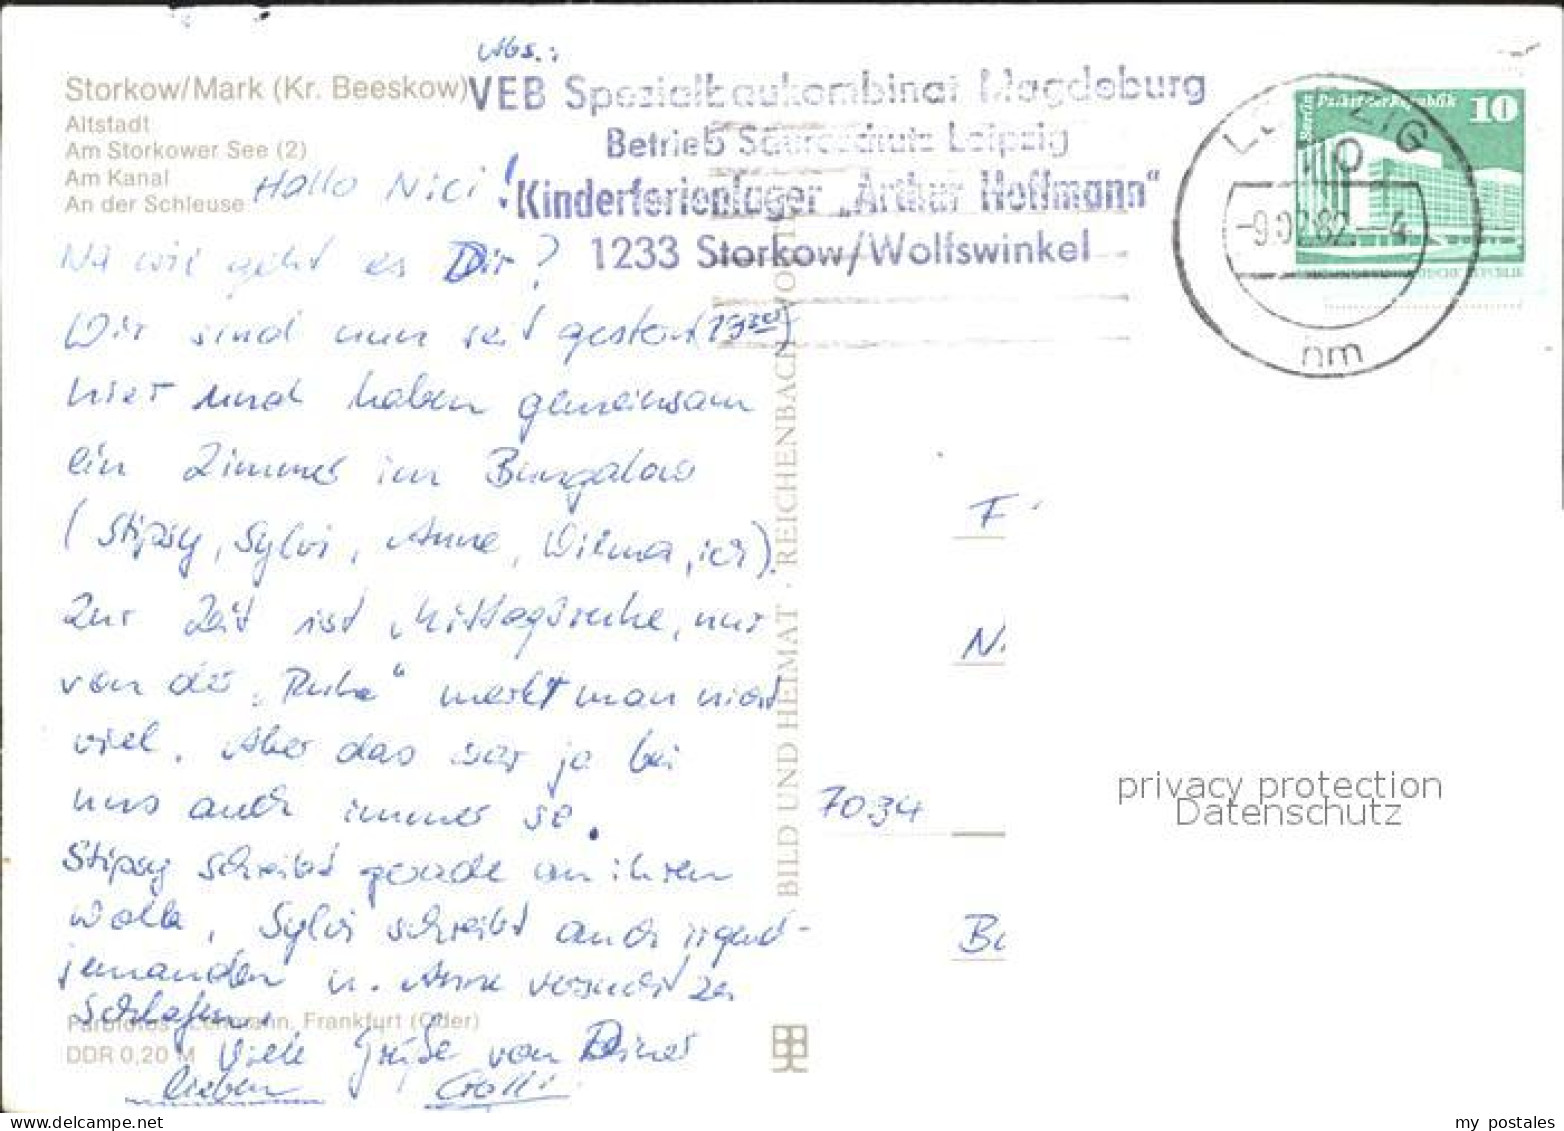 Abs.:
Storkow/Mark (Kr. Beeskow)
Altstadt
Am Storkower See (2)
Am Kanal
An der Schleuse
VEB Spezialbaukombinat Magdeburg
Betrieb Säureschutz Leipzig
Kinderferienlager „Arthur Hoffmann"
1233 Storkow/Wolfswinkel
Berlin Palast der Republik 10
LEIPZIG
10
-9.02.82.-4
nm
Hallo Nici!
Na wie geht es Dir?
Wir sind nun seit gestern
hier und haben gemeinsam
ein Zimmer im Bungalow
(Stipsy, Sylvi, Anne, Wilma, ich).
Zur Zeit ist Mittagsruhe, nur
von der „Ruhe" merkt man nicht
viel. Aber das war ja bei
uns auch immer so.
Stipsy schreibt gerade an ihren
Sylvi schreibt auch irgend-
jemanden u. Anne versucht zu
schlafen.
Viele Grüße von Deiner
lieben
Farbfotos: Lehmann, Frankfurt (Oder)
DDR 0,20 M
BILD UND HEIMAT · REICHENBACH
F
N
7034
Bu
privacy protection
Datenschutz
www.delcampe.net
my postales